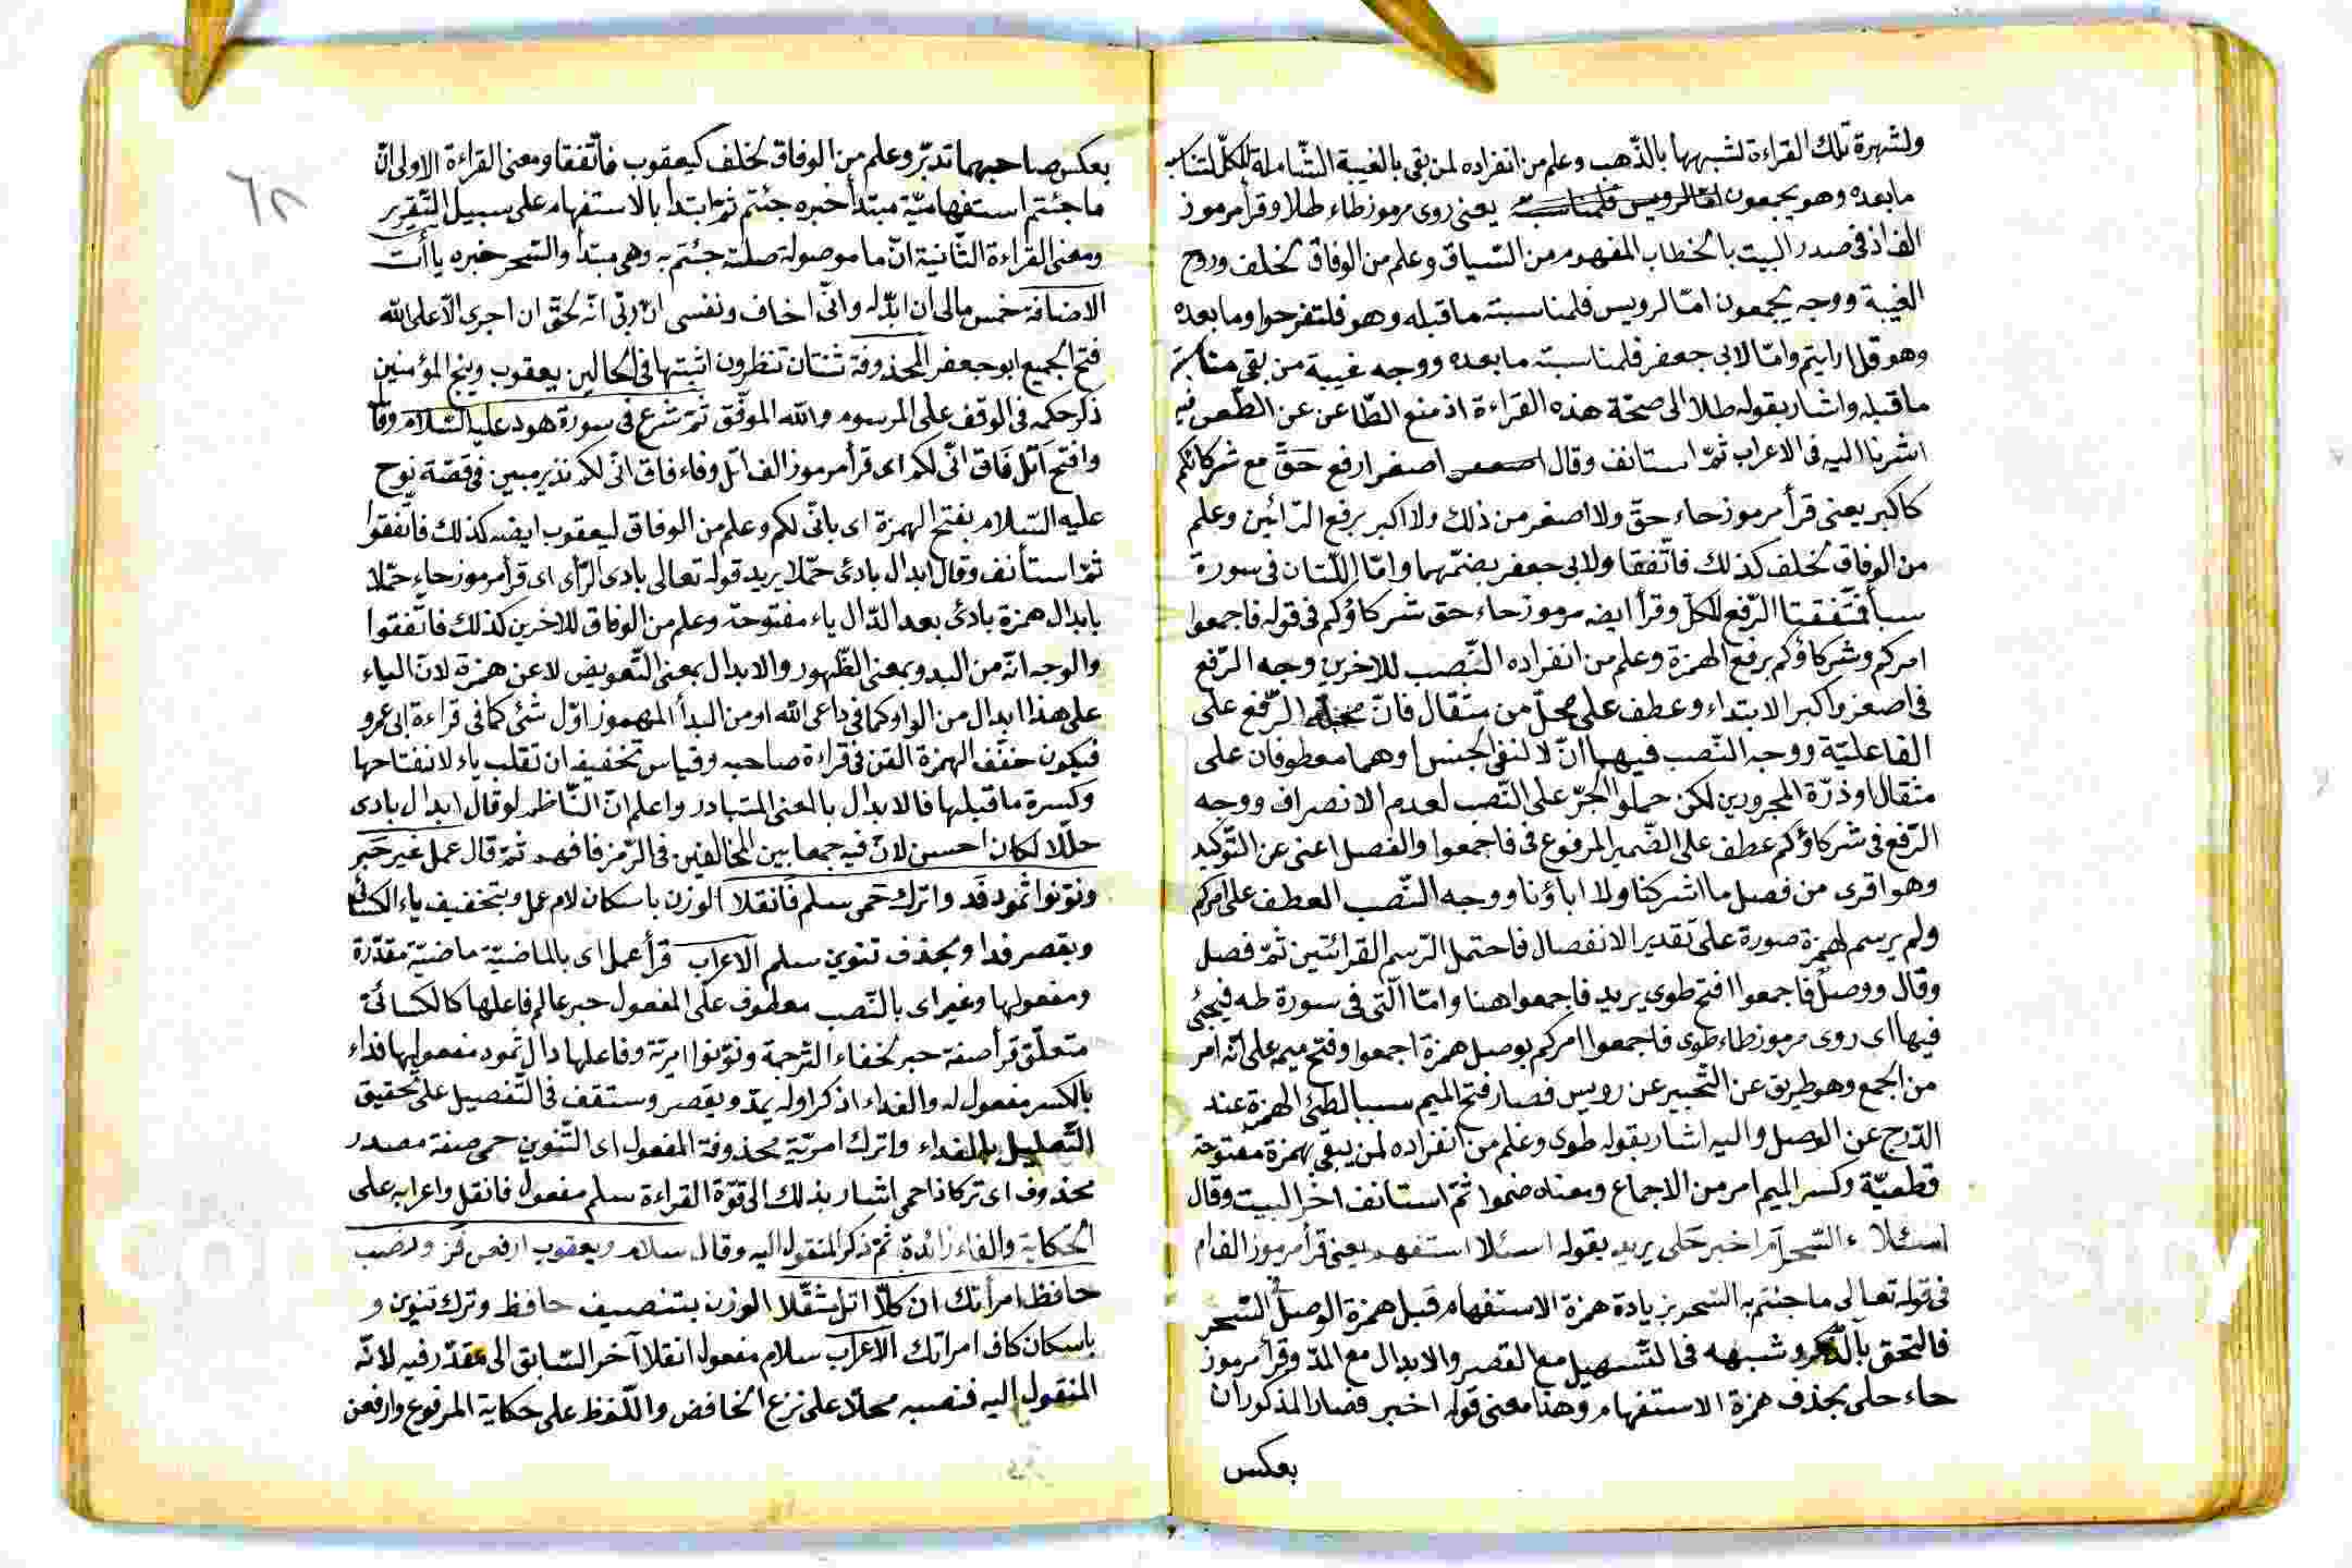 ولشهرة تلك القراءة لشبهها بالذّهب وعلم من انفراده لمن بقى بالغيبة الشّاملة للكلّ لتناسب
مابعده وهو يجمعون امّا لرويس فلمناسبة يعنى روى مرموز طاء طلا وقرأ مرموز
الف اذ فى صدر البيت بالخطاب المفهوم من السّياق وعلم من الوفاق لخلف وروح
الغيبة ووجه يجمعون امّا لرويس فلمناسبته ماقبله وهو فلتفرحوا وما بعده
وهو قل ارايتم وامّا لابى جعفر فلمناسبته مابعده ووجه غيبة من بقى مناسبة
ماقبله واشار بقوله طلا الى صحّة هذه القراءة اذ منع الطّاعن عن الطّعن فيه
اشرنا اليه فى الاعراب ثمّ استانف وقال اصغر ارفع حَقّ مع شركائكم
كاكبر يعنى قرأ مرموز حاء حقّ ولا اصغر من ذلك ولا اكبر برفع الرّائين وعلم
من الوفاق لخلف كذلك فاتّفقا ولابى جعفر بضمّهما وامّا اللّتان فى سورة
سبأ فتّفقتا الرّفع للكلّ وقرأ ايضه مرموز حاء حق شركاؤكم فى قوله فاجمعوا
امركم وشركاؤكم برفع الهمزة وعلم من انفراده النّصب للاخرين وجه الرّفع
فى اصغر واكبر الابتداء وعطف على محلّ من مثقال فانّ محلّه الرّفع على
الفاعليّة ووجه النّصب فيهما انّ لا لنفى الجنس او هما معطوفان على
مثقال او ذرّة المجرورين لكن حملوا الجرّ على النّصب لعدم الانصراف ووجه
الرّفع فى شركاؤكم عطف على الضّمير المرفوع فى فاجمعوا والفصل اغنى عن التّوكيد
وهو اقرى من فصل ما اشركنا ولا اباؤنا ووجه النّصب العطف على امركم
ولم يرسم لهمزة صورة على تقدير الانفصال فاحتمل الرّسم القرائتين ثمّ فصل
وقال ووصل فاجمعوا افتح طوى يريد فاجمعوا هنا وامّا الّتى فى سورة طه فيجئ
فيها اى روى مرموز طاء طوى فاجمعوا امركم بوصل همزة اجمعوا وفتح ميمه على انّه امر
من الجمع وهو طريق عن التّحبير عن رويس فصار فتح الميم سببا لطىّ الهمزة عند
الدّرج عن الوصل واليه اشار بقوله طوى وعلم من انفراده لمن يبقى بهمزة مفتوحة
قطعيّة وكسر الميم امر من الاجماع ومعناه ضموا ثمّ استانف اخر البيت وقال
اسئلا ء السّحر اَم اخبر حَلى يريد بقوله اسئلا استفهم يعنى قرأ مرموز الف ام
فى قوله تعالى ما جئتم به السّحر بزيادة همزة الاستفهام قبل همزة الوصل فى السّحر
فالتحق بآلذّكر وشبهه فى التّسهيل مع القصر والابدال مع المدّ وقرأ مرموز
حاء حلى بحذف همزة الاستفهام وهذا معنى قوله اخبر فصار المذكوران
بعكس
٦٨
بعكس صاحبهما تدبّر وعلم من الوفاق لخلف كيعقوب فاتّفقا ومعنى القراءة الاولى انّ
ما جئتم استفهاميّة مبتدأ خبره جئتم ثمّ ابتدأ بالاستفهام على سبيل التّقرير
ومعنى القراءة الثّانية انّ ما موصولة صلته جئتم به وهى مبتدأ والسّحر خبره ياأت
الاضافة خمس مالى ان ابدّله وانّى اخاف ونفسى ان وربّى انّه لحقّ ان اجرى الّا على الله
فتح الجميع ابو جعفر المحذوفة ثنتان تنظرون اثبتها فى الحالين يعقوب وينج المؤمنين
ذكر حكمه فى الوقف على المرسوم والله الموفّق ثمّ شرع فى سورة هود عليه السّلام وقا
وافتح اَتل فَاق انّى لكم اى قرأ مرموز الف اتل وفاء فاق انّى لكم نذير مبين فى قصّة نوح
عليه السّلام بفتح الهمزة اى بانّى لكم وعلم من الوفاق ليعقوب ايضه كذلك فاتّفقوا
ثمّ استأنف وقال ابدال بادئ حمّلا يريد قوله تعالى بادى الرّأى اى قرأ مرموز حاء حمّلا
بابدال همزة بادئ بعد الدّال ياء مفتوحة وعلم من الوفاق للاخرين كذلك فاتّفقوا
والوجه انّه من البدو بمعنى الظّهور والابدال بمعنى التّعويض لا عن همزة لانّ الياء
على هذا ابدال من الواو كما فى داعى الله او من البدأ المهموز اوّل شئ كما فى قراءة ابى عمرو
فيكون خفّف الهمزة الّتى فى قراءة صاحبه وقياس تخفيفه ان تقلب ياء لانفتاحها
وكسرة ما قبلها فالابدال بالمعنى المتبادر واعلم انّ النّاظم لو قال ابدال بادى
حلّلا لكان احسن لانّ فيه جمعا بين المخالفين فى الرّمز فافهم ثمّ قال عمل غير حَبر
ونوّنوا ثمود فَد واترك حَمى سلم فانقلا الوزن باسكان لام عمل وبتخفيف ياء الكسائى
وبقصر فدا وبحذف تنوين سلم الاعراب قرأ عمل اى بالماضيّة ماضيّة مقدّرة
ومفعولها وغير اى بالنّصب معطوف على المفعول حبر عالم فاعلها كالكسائى
متعلّق قرأ صفة حبر لخفاء التّرجمة ونوّنوا امريّة وفاعلها دال ثمود مفعولها فداء
بالكسر مفعول له والفداء اذ كر اوله يمدّ ويقصر وستقف فى التّفصيل على تحقيق
التّعليل بالفداء واترك امريّة محذوفة المفعول اى التّنوين حمى صفة مصدر
محذوف اى تركا ذا حمى اشار بذلك الى قوّة القراءة سلم مفعول فانقل واعرابه على
الحكاية والفاء زائدة ثمّ ذكر المنقول اليه وقال سلام ويعقوب ارفعن فز ونصب
حافظ امرأتك ان كلّا اتل مثقّلا الوزن بتنصيف حافظ وترك تنوين و
باسكان كاف امراتك الاعراب سلام مفعول انقلا آخر السّابق الى مقدّر فيه لانّه
المنقول اليه فنصبه محلّا على نزع الخافض واللّفظ على حكاية المرفوع وارفعن